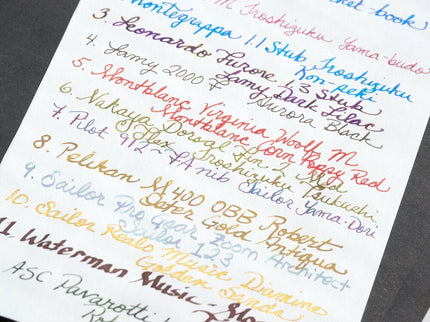 M Iroshizuku Yama-budo
Montegrappa 1.1 Stub Iroshizuku
Kon-peki
3. Leonardo Furore 1.3 Stub
Lamy Dark Lilac
4. Lamy 2000 F Aurora Black
5. Montblanc Virginia Woolf M
Montblanc Corn Poppy Red
6. Nakaya Dorsal Fin 2
Iroshizuku Tsukushi
7. Pilot 912 FA nib Sailor Yama-Dori
8. Pelikan M400 OBB Robert
Oster Gold Antiqua
9. Sailor Pro Gear Zoom Architect
Sailor 123
10. Sailor Realo Music Diamine
Golden Sands
11. Waterman Music - Mo
ASC Pavarotti